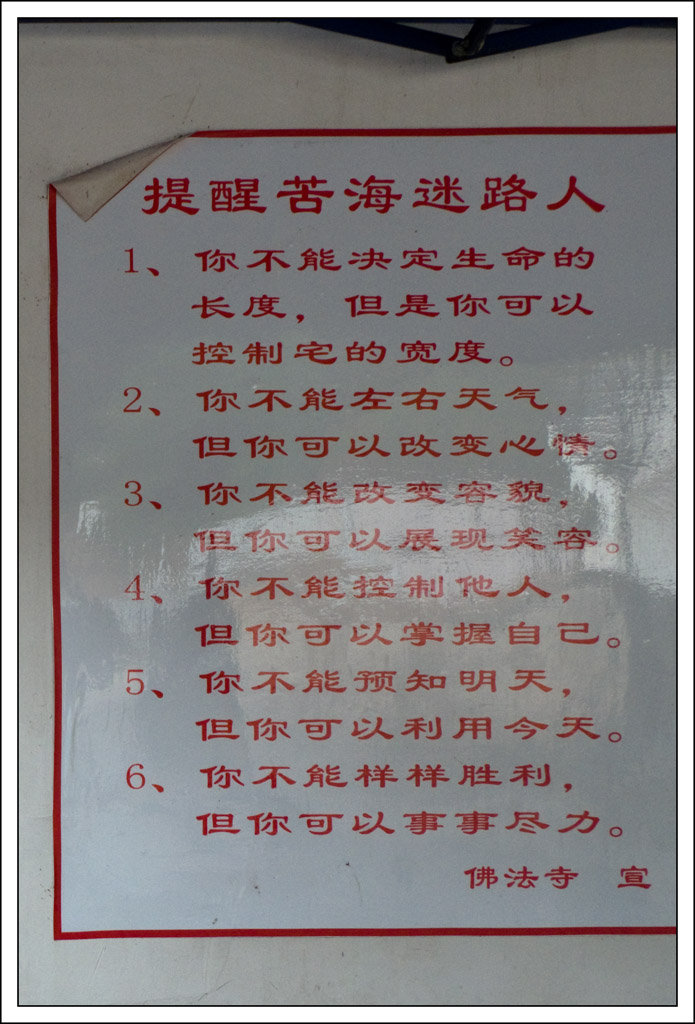 提醒苦海迷路人
1、你不能决定生命的
长度，但是你可以
控制宅的宽度。
2、你不能左右天气，
但你可以改变心情。
3、你不能改变容貌，
但你可以展现笑容。
4、你不能控制他人，
但你可以掌握自己。
5、你不能预知明天，
但你可以利用今天。
6、你不能样样胜利，
但你可以事事尽力。
佛法寺 宣